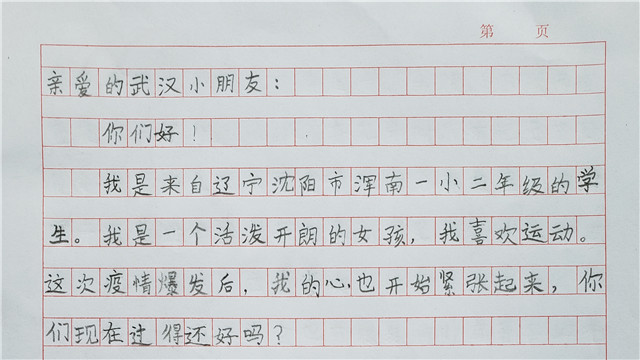 第 页
亲爱的武汉小朋友：
你们好！
我是来自辽宁沈阳市浑南一小二年级的学
生。我是一个活泼开朗的女孩，我喜欢运动。
这次疫情爆发后，我的心也开始紧张起来，你
们现在过得还好吗？